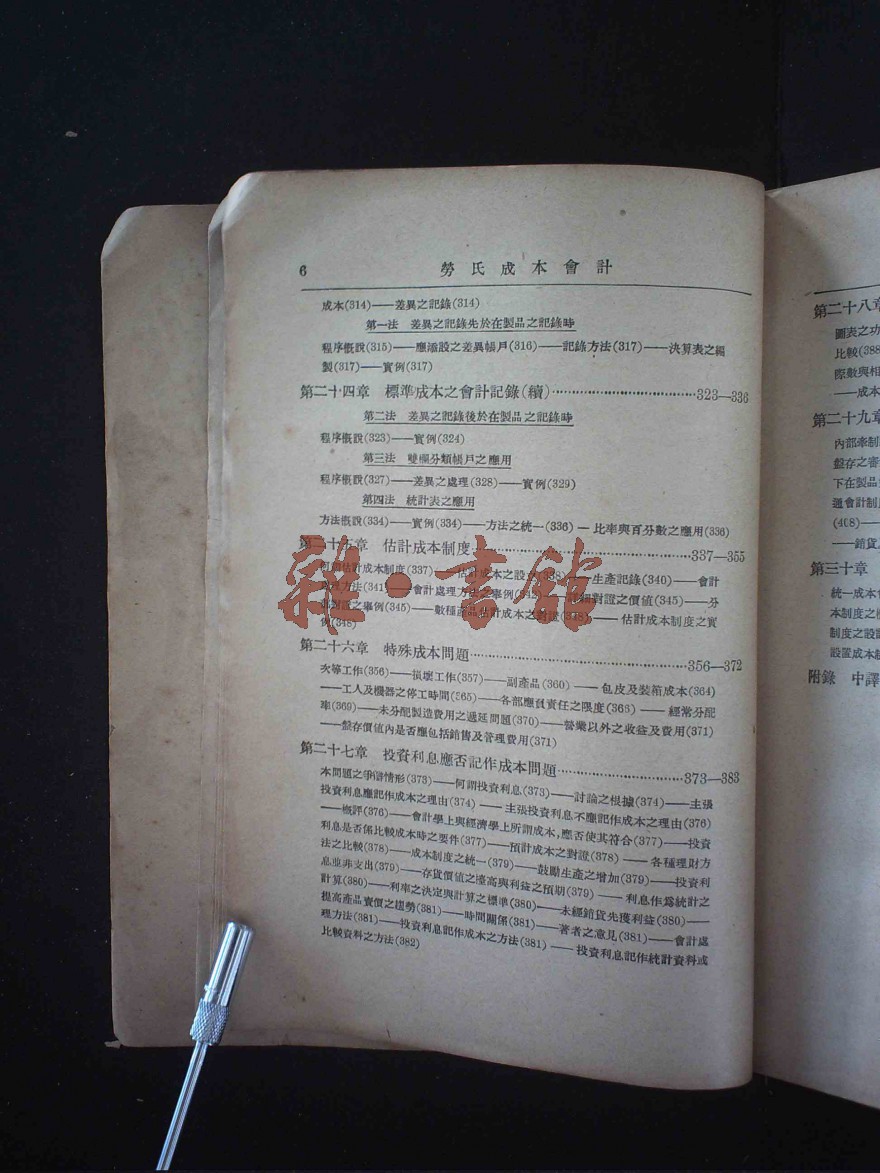 6 勞氏成本會計
成本(314)——差異之記錄(314)
第一法 差異之記錄先於在製品之記錄時
程序概說(315)——應添設之差異帳戶(316)——記錄方法(317)——決算表之編
製(317)——實例(317)
第二十四章 標準成本之會計記錄(續)·················323—336
第二法 差異之記錄後於在製品之記錄時
程序概說(323)——實例(324)
第三法 雙欄分類帳戶之應用
程序概說(327)——差異之處理(328)——實例(329)
第四法 統計表之應用
方法概說(334)——實例(334)——方法之統一(336)—比率與百分數之應用(336)
第二十五章 估計成本制度·················337—355
估計成本制度(337)——估計成本之設——生產記錄(340)——會計
方法(341)——會計處理方法之事例——對證之價值(345)——分
對證之事例(345)——數種產品估計成本之對證(348)——估計成本制度之實
例(348)
第二十六章 特殊成本問題·················356—372
次等工作(356)——損壞工作(357)——副產品(360)——包皮及裝箱成本(364)
——工人及機器之停工時間(365)——各部應負責任之限度(368)——經常分配
率(369)——未分配製造費用之遞延問題(370)——營業以外之收益及費用(371)
——盤存價值內是否應包括銷售及管理費用(371)
第二十七章 投資利息應否記作成本問題·················373—383
本問題之爭辯情形(373)——何謂投資利息(373)——討論之根據(374)——主張
投資利息應記作成本之理由(374)——主張投資利息不應記作成本之理由(376)
——概評(376)——會計學上與經濟學上所謂成本,應否使其符合(377)——投資
利息是否係比較成本時之要件(377)——預計成本之對證(378)——各種理財方
法之比較(378)——成本制度之統一(379)——鼓勵生產之增加(379)——投資利
息並非支出(379)——存貨價值之擡高與利益之預期(379)——利息作爲統計之
計算(380)——利率之決定與計算之標準(380)——未經銷貨先獲利益(380)——
提高產品賣價之趨勢(381)——時間關係(381)——著者之意見(381)——會計處
理方法(381)——投資利息記作成本之方法(381)——投資利息記作統計資料或
比較資料之方法(382)
雜·書館
第二十八章
圖表之功
比較(388
際數與相
——成本
第二十九章
內部牽制
盤存之審
下在製品
通會計制
(408)——
——銷貨
第三十章
統一成本會
本制度之
制度之設
設置成本
附錄 中譯